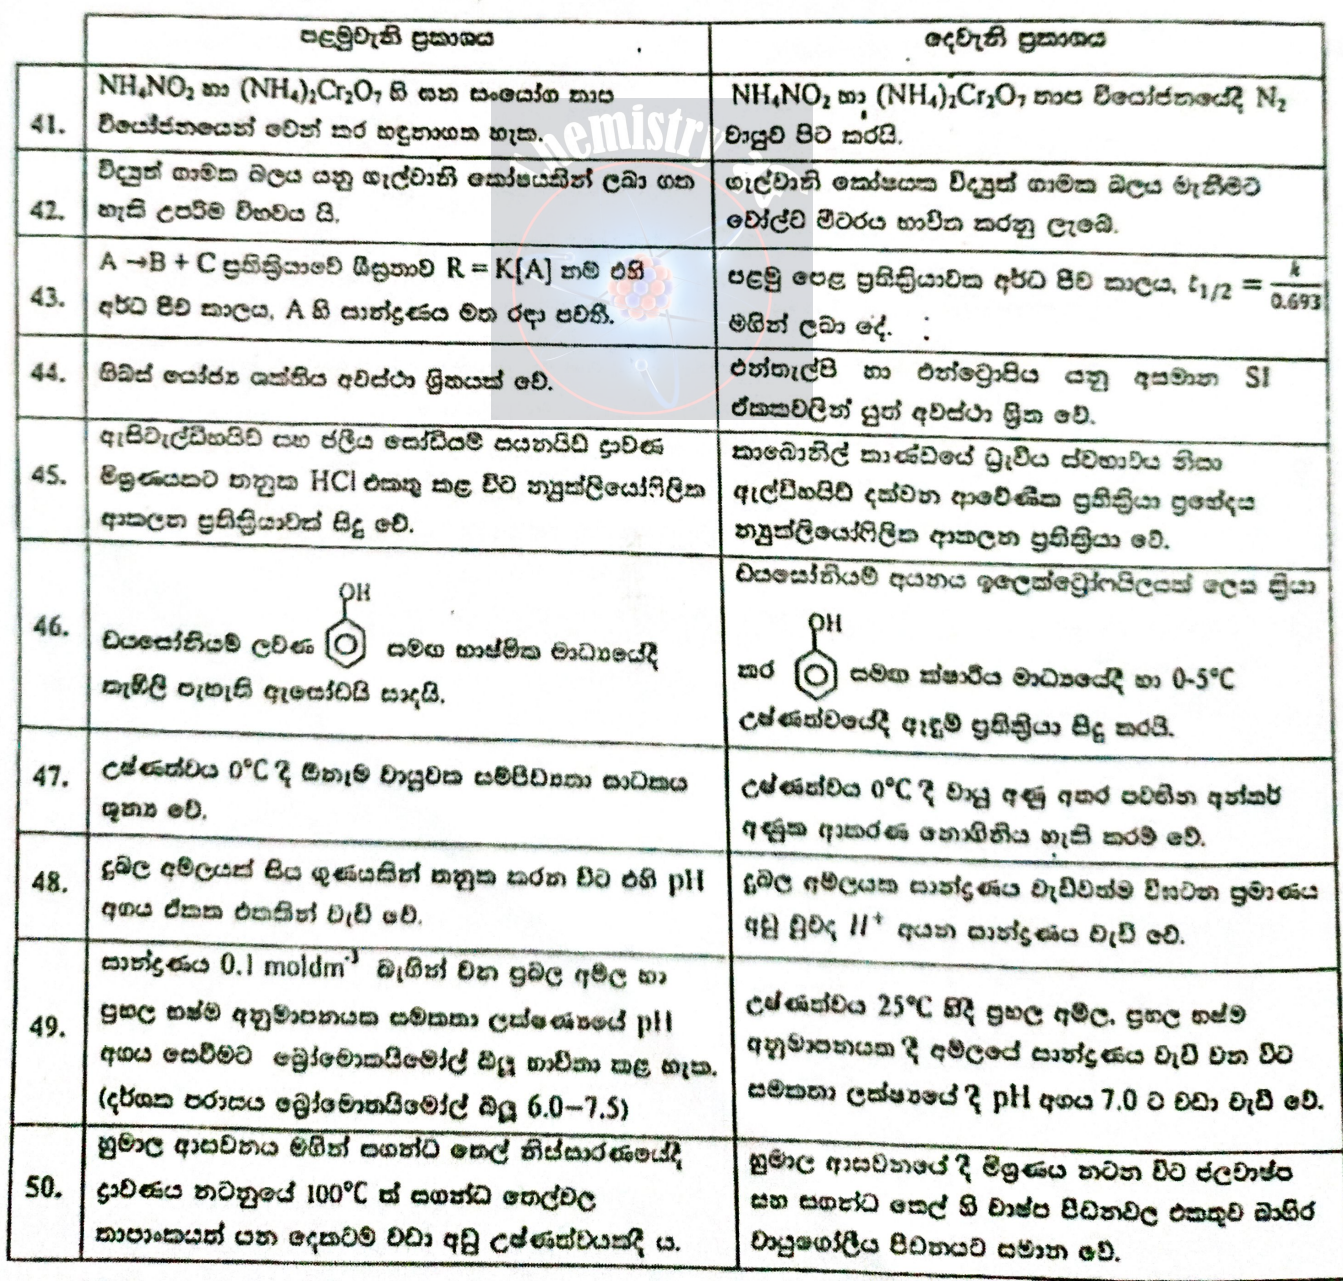 පළමුවැනි ප්‍රකාශය
දෙවැනි ප්‍රකාශය
41.
NH₄NO₂ හා (NH₄)₂Cr₂O₇ හි ඝන සංයෝග තාප
වියෝජනයෙන් වෙන් කර හඳුනාගත හැක.
NH₄NO₂ හා (NH₄)₂Cr₂O₇ තාප වියෝජනයේදී N₂
වායුව පිට කරයි.
42.
විද්‍යුත් ගාමක බලය යනු ගැල්වානි කෝෂයකින් ලබා ගත
හැකි උපරිම විභවය යි.
ගැල්වානි කෝෂයක විද්‍යුත් ගාමක බලය මැනීමට
වෝල්ට් මීටරය භාවිත කරනු ලැබේ.
43.
A →B + C ප්‍රතික්‍රියාවේ ශීඝ්‍රතාව R = K[A] නම් එහි
අර්ධ ජීව කාලය, A හි සාන්ද්‍රණය මත රඳා පවතී.
පළමු පෙළ ප්‍රතික්‍රියාවක අර්ධ ජීව කාලය, t₁/₂ = k/0.693
මගින් ලබා දේ.
44.
ගිබ්ස් යෝජ්‍ය ශක්තිය අවස්ථා ශ්‍රිතයක් වේ.
එන්තැල්පි හා එන්ට්‍රොපිය යනු අසමාන SI
ඒකකවලින් යුත් අවස්ථා ශ්‍රිත වේ.
45.
ඇසිටැල්ඩිහයිඩ් සහ ජලීය සෝඩියම් සයනයිඩ් ද්‍රාවණ
මිශ්‍රණයකට තනුක HCl එකතු කළ විට න්‍යුක්ලියෝෆිලික
ආකලන ප්‍රතික්‍රියාවක් සිදු වේ.
කාබොනිල් කාණ්ඩයේ ධ්‍රැවීය ස්වභාවය නිසා
ඇල්ඩිහයිඩ් දක්වන ආවේණික ප්‍රතික්‍රියා ප්‍රභේදය
න්‍යුක්ලියෝෆිලික ආකලන ප්‍රතික්‍රියා වේ.
46.
OH
ඩයසෝනියම් ලවණ සමඟ භාෂ්මික මාධ්‍යයේදී
තැඹිලි පැහැති ඇසෝඩයි සාදයි.
ඩයසෝනියම් අයනය ඉලෙක්ට්‍රෝෆයිලයක් ලෙස ක්‍රියා
OH
කර සමඟ ක්ෂාරීය මාධ්‍යයේදී හා 0-5°C
උෂ්ණත්වයේදී ඇඳුම් ප්‍රතික්‍රියා සිදු කරයි.
47.
උෂ්ණත්වය 0°C දී ඕනෑම වායුවක සම්පීඩ්‍යතා සාධකය
ශුන්‍ය වේ.
උෂ්ණත්වය 0°C දී වායු අණු අතර පවතින අන්තර්
අණුක ආකර්ශණ නොගිනිය හැකි තරම් වේ.
48.
දුබල අම්ලයක් සිය ගුණයකින් තනුක කරන විට එහි pH
අගය ඒකක එකකින් වැඩි වේ.
දුබල අම්ලයක සාන්ද්‍රණය වැඩිවත්ම විඝටන ප්‍රමාණය
අඩු වුවද H⁺ අයන සාන්ද්‍රණය වැඩි වේ.
49.
සාන්ද්‍රණය 0.1 moldm⁻³ බැගින් වන ප්‍රබල අම්ල හා
ප්‍රබල භෂ්ම අනුමාපනයක සමකතා ලක්ෂ්‍යයේ pH
අගය සෙවීමට බ්‍රෝමොතයිමෝල් බ්ලූ භාවිතා කළ හැක.
(දර්ශක පරාසය බ්‍රෝමොතයිමෝල් බ්ලූ 6.0–7.5)
උෂ්ණත්වය 25°C හිදී ප්‍රබල අම්ල, ප්‍රබල භෂ්ම
අනුමාපනයක දී අම්ලයේ සාන්ද්‍රණය වැඩි වන විට
සමකතා ලක්ෂ්‍යයේ දී pH අගය 7.0 ට වඩා වැඩි වේ.
50.
හුමාල ආසවනය මගින් සගන්ධ තෙල් නිස්සාරණයේදී
ද්‍රාවණය නටනුයේ 100°C ත් සගන්ධ තෙල්වල
තාපාංකයත් යන දෙකටම වඩා අඩු උෂ්ණත්වයකදී ය.
හුමාල ආසවනයේ දී මිශ්‍රණය නටන විට ජලවාෂ්ප
සහ සගන්ධ තෙල් හි වාෂ්ප පීඩනවල එකතුව බාහිර
වායුගෝලීය පීඩනයට සමාන වේ.